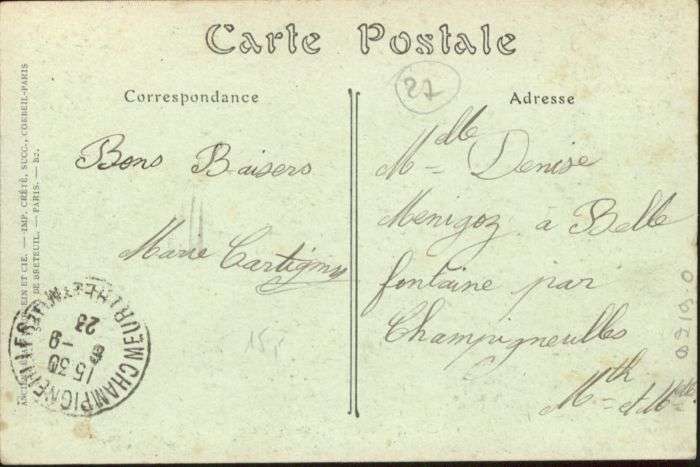 Carte Postale
Correspondance
Adresse
27
Bons Baisers
Marie Cartigny
Mlle Denise
Menigoz à Belle
fontaine par
Champigneulles
Mth et Mlle
15,
CHAMPIGNEULLES
MEURTHE-ET-MLLE
15 30
9 -
23
EIN ET CIE. — IMP. CRÉTÉ, SUCC., CORBEIL-PARIS
DE BRETEUIL. — PARIS. —